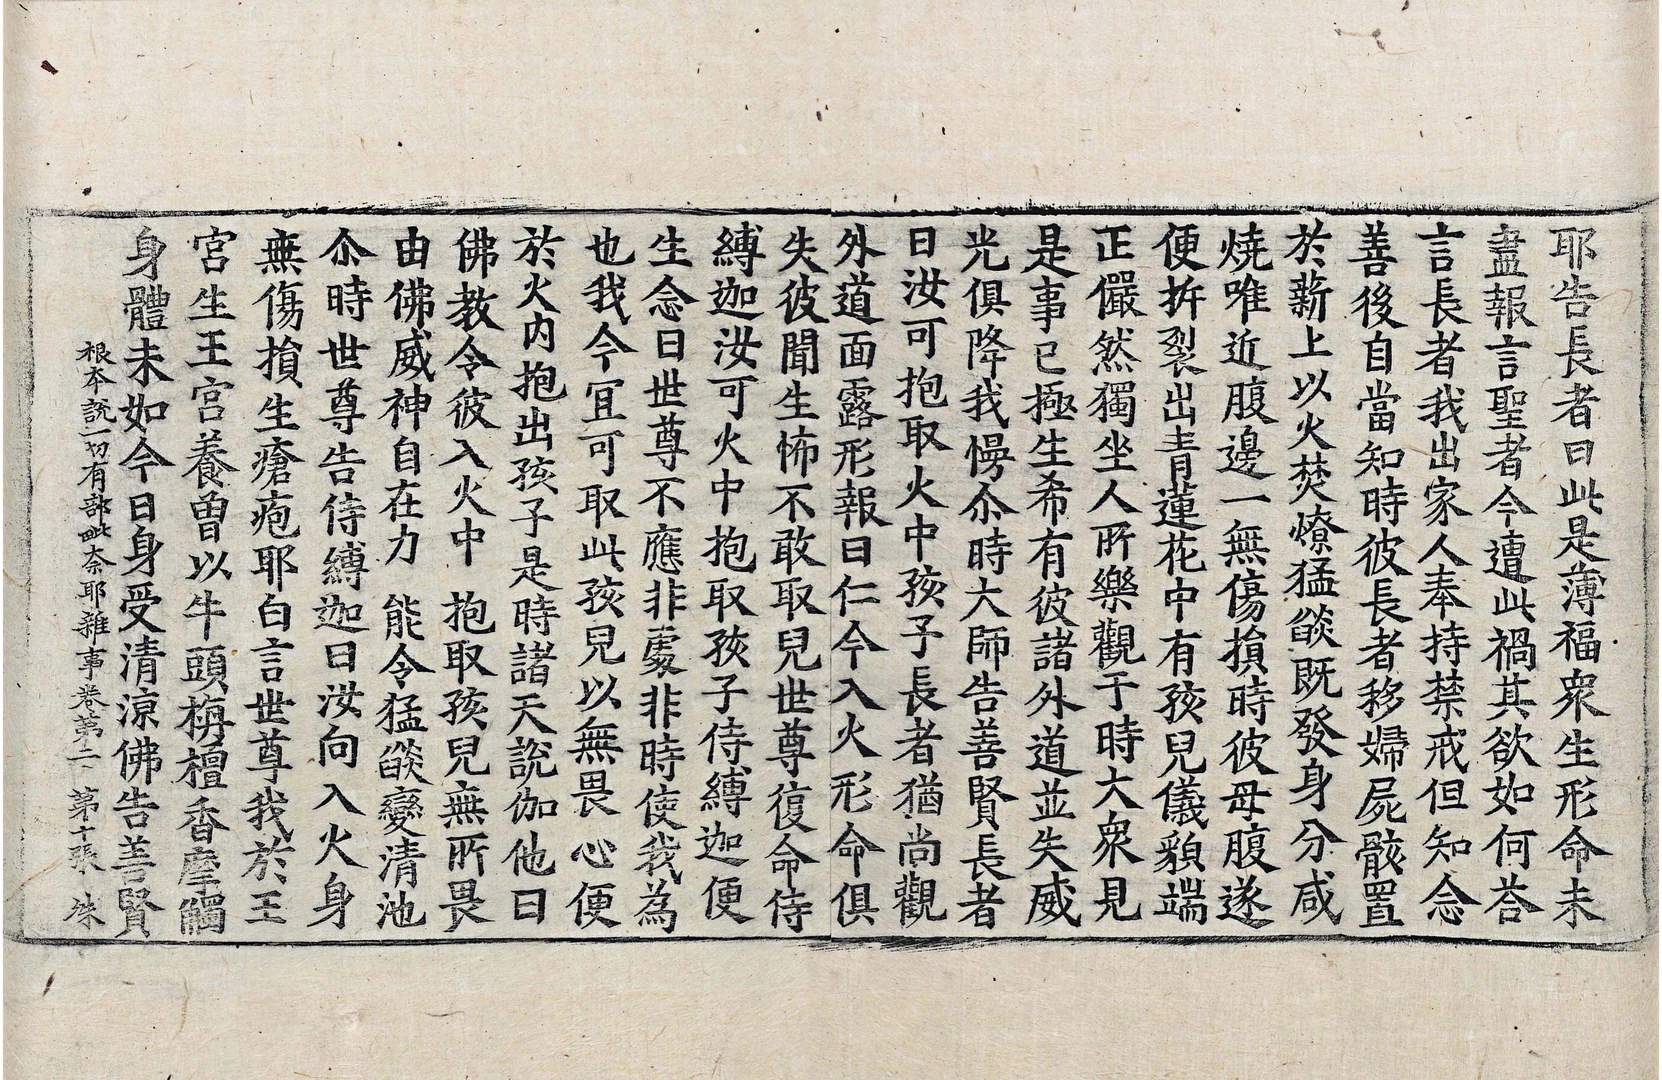 耶告長者曰此是薄福衆生形命未
盡報言聖者今遭此禍其欲如何荅
言長者我出家人奉持禁戒但知念
善後自當知時彼長者移婦屍骸置
於薪上以火焚燎猛燄既發身分咸
燒唯近腹邊一無傷損時彼母腹遂
便拆裂出青蓮花中有孩兒儀貌端
正儼然獨坐人所樂觀于時大衆見
是事已極生希有彼諸外道並失威
光俱降我慢尒時大師告善賢長者
曰汝可抱取火中孩子長者猶尚觀
外道面露形報曰仁今入火形命俱
失彼聞生怖不敢取兒世尊復命侍
縛迦汝可火中抱取孩子侍縛迦便
生念曰世尊不應非處非時使我為
也我今冝可取此孩兒以無畏心便
於火内抱出孩子是時諸天說伽他曰
佛教令彼入火中　抱取孩兒無所畏
由佛威神自在力　能令猛燄變清池
尒時世尊告侍縛迦曰汝向入火身
無傷損生瘡疱耶白言世尊我於王
宮生王宮養曾以牛頭栴檀香塗觸
身體未如今日身受清涼佛告善賢
根本說一切有部毗奈耶雜事卷第二　第十張　洙